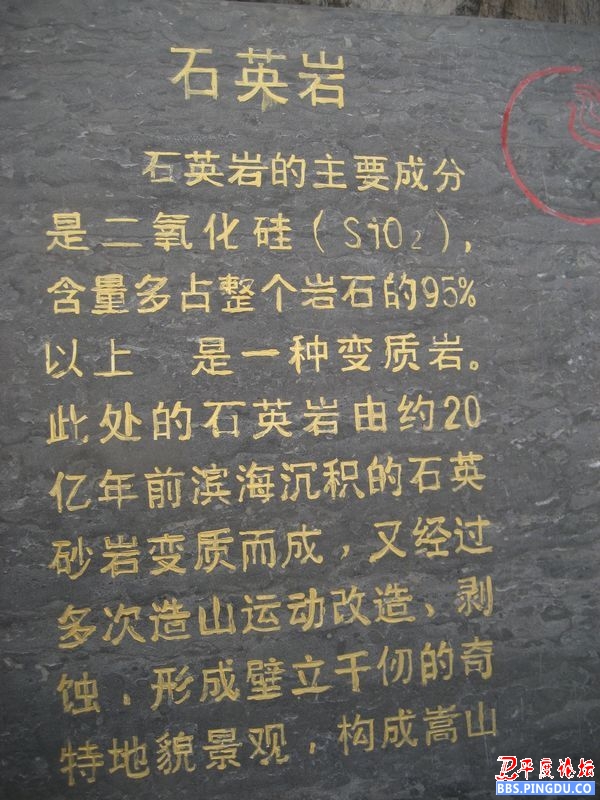 石英岩
石英岩的主要成分
是二氧化硅(SiO₂),
含量多占整个岩石的95%
以上 是一种变质岩。
此处的石英岩由约20
亿年前滨海沉积的石英
砂岩变质而成,又经过
多次造山运动改造、剥
蚀,形成壁立千仞的奇
特地貌景观,构成嵩山
平度论坛
BBS.PINGDU.CO